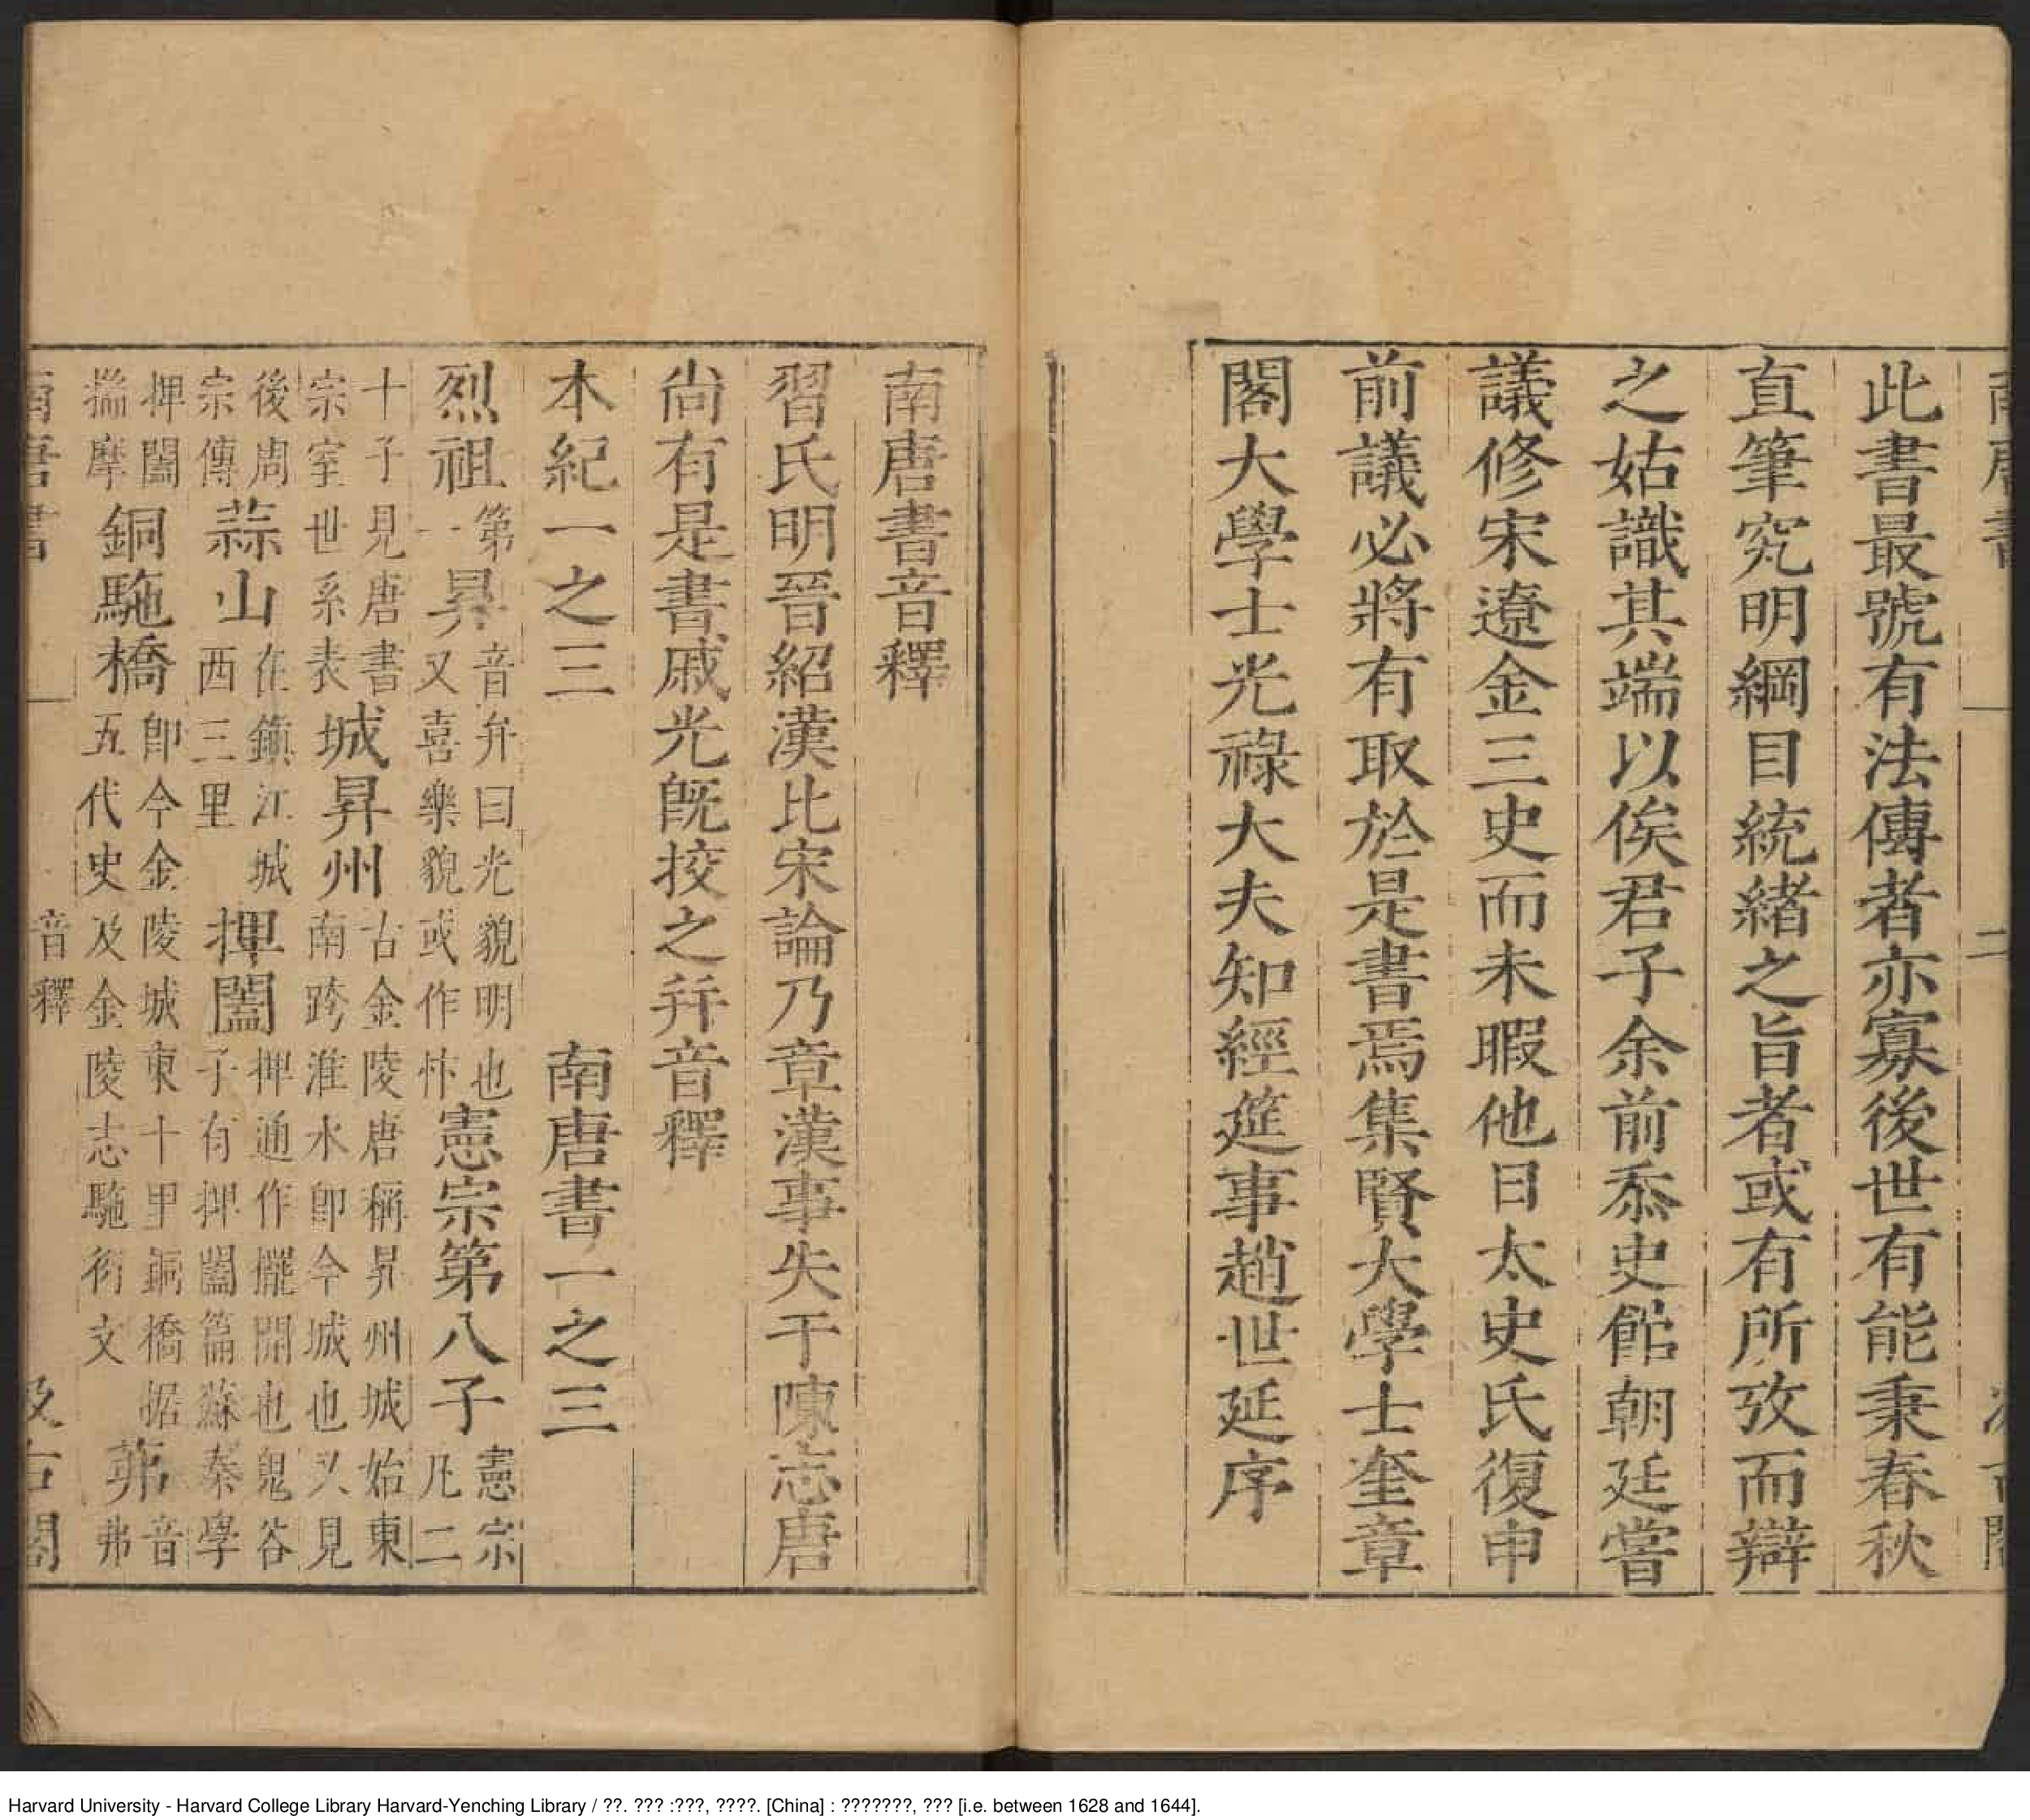 南唐書
二
此書最號有法傳者亦寡後世有能秉春秋
直筆究明綱目統緒之旨者或有所攷而辯
之姑識其端以俟君子余前忝史館朝廷嘗
議修宋遼金三史而未暇他日太史氏復申
前議必將有取於是書焉集賢大學士奎章
閣大學士光祿大夫知經筵事趙世延序
南唐書音釋
習氏明晉紹漢比宋論乃章漢事失于陳志唐
尚有是書戚光旣挍之并音釋
本紀一之三 南唐書一之三
烈祖第一昪音弁曰光貌明也又喜樂貌或作忭憲宗第八子憲宗凡二
十子見唐書宗室世系表城昇州古金陵唐稱昇州城始東南跨淮水卽今城也又見
後周宗傳蒜山在鎮江城西三里捭闔捭通作擺開也鬼谷子有捭闔篇蘇秦學
捭闔揣摩銅駞橋卽今金陵城東十里銅橋據五代史及金陵志駞衍文茀音弗
南唐書
音釋
汲古閣
Harvard University - Harvard College Library Harvard-Yenching Library / ??. ??? :???, ????. [China] : ???????, ??? [i.e. between 1628 and 1644].